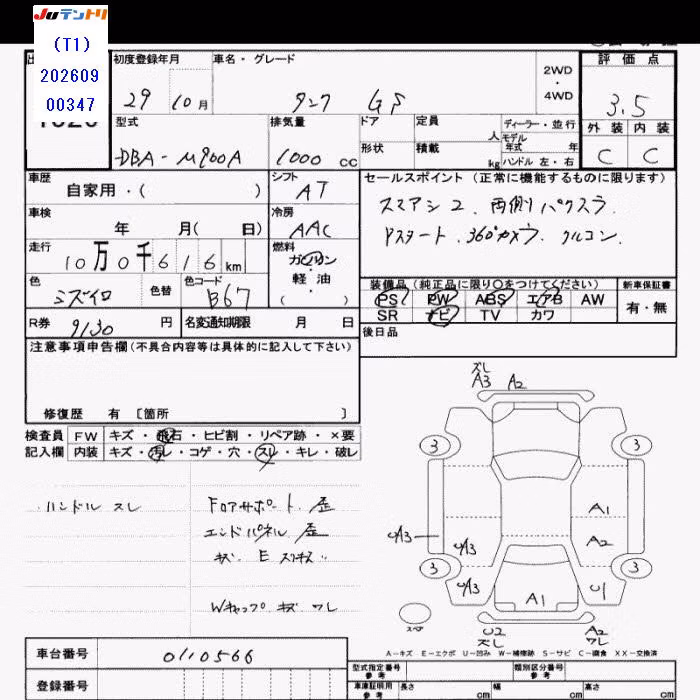 Juテントリ
(T1)
202609
00347
初度登録年月
29 10月
車名・グレード
タンク GS
2WD
・
4WD
評価点
3.5
外装 内装
C C
型式
DBA-M900A
排気量
1000 cc
ドア
形状
定員
人
積載
kg
ディーラー・並行
モデル
年式 年
ハンドル 左・右
車歴
自家用・( )
シフト
AT
車検
年 月( 日)
冷房
AAC
走行
10万0千616km
燃料
ガソリン
・
軽油
・
( )
色
ミズイロ
色替
色コード
B67
R券
9130 円
名変通知期限 月 日
セールスポイント(正常に機能するものに限ります)
スマアシ2、両側パワスラ
Pスタート、360°カメラ、クルコン、
装備品(純正品に限り〇をつけてください)
新車保証書
PS PW ABS エアB AW
SR ナビ TV カワ
有・無
後日品
注意事項申告欄(不具合内容等は具体的に記入して下さい)
修復歴 有 〔箇所 〕
検査員 FW キズ・飛石・ヒビ割・リペア跡・×要
記入欄 内装 キズ・汚レ・コゲ・穴・スレ・キレ・破レ
ハンドル スレ
Fロアサポート 歪
エンドパネル 歪
キズ E
Wキャップ キズ ワレ
ズレ
A3 A2
3 3
A1
A2
UA3
UA3
3 3
UA3
U1
A1
スペア
U2
ズレ
A2
ワレ
A-キズ E-エクボ U-凹み W-補修跡 S-サビ C-腐食 XX-交換済
車台番号
0110566
登録番号
型式指定番号
参考
類別区分番号
参考
車庫証明用
参考
長さ cm
幅 cm
高さ cm